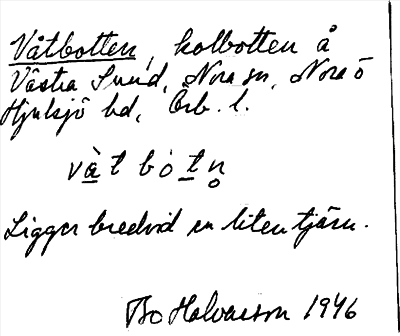 Våtbotten, kolbotten å
Västra Sund, Nora sn, Nora ö
Hjulsjö bd, Örb. l.
våt bótn̥
Ligger bredvid en liten tjärn.
Bo Halvarson 1946